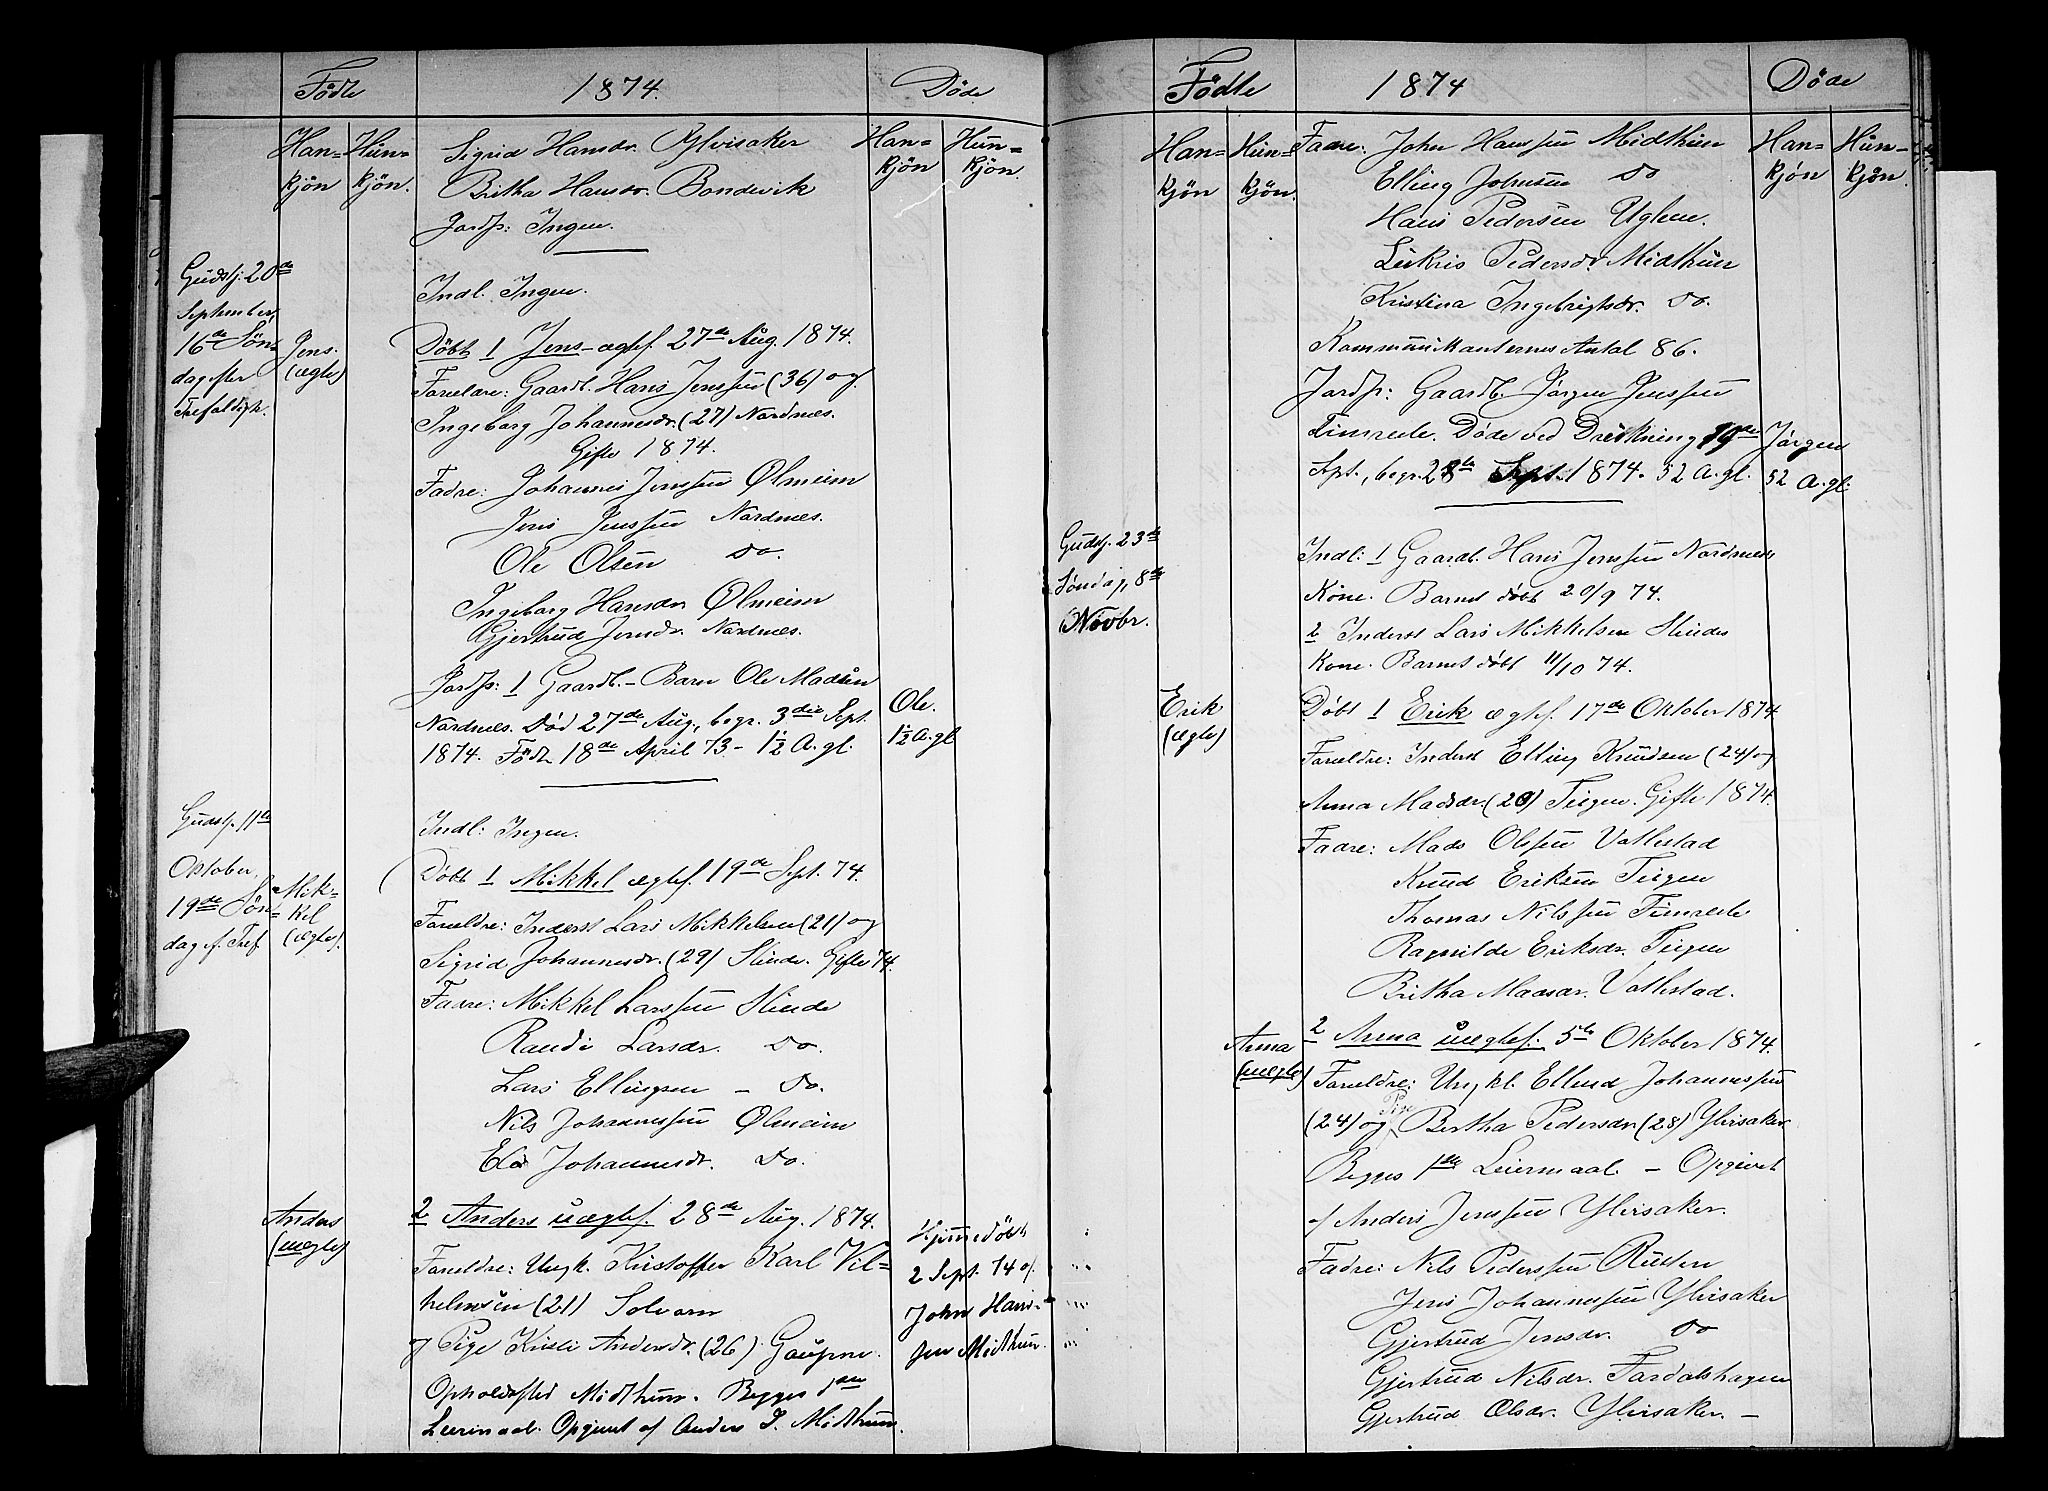 Födte
1874.
Döde
Han=
kjön
Hün=
kjön.
Han=
kjön
Hün=
kjön.
Sigrid Hansdr. Ylvisaker
Britha Hansdr. Bondevik
Jordf: Ingen.
Gudstj. 20de
September,
16de Sön-
dag efter
Trefoldigh.
Jens.
(ægte)
Indl. Ingen.
Döbt 1 Jens - ægtef. 27de Aug. 1874.
Forældre: Gaardb. Hans Jenssen (36) og
Ingeborg Johannesdr. (27) Nordnes.
Gifte 1874.
Fadre: Johannes Jenssen Ølmeim
Jens Jenssen Nordnes.
Ole Olsen do.
Ingeborg Hansdr. Ølmeim
Gjertrud Jensdr. Nordnes.
Jordf: 1 Gaardb. - Barn Ole Madsen
Nordnes. Död 27de Aug., begr. 3die Sept.
1874. Födt 18de April 73 - 1½ A. gl.
Ole.
1½ A. gl
Gudstj. 11te
Oktober,
19de Sön=
dag ef. Tref.
Mik=
kel
(ægte).
Indl: Ingen.
Döbt 1 Mikkel ægtef. 19de Sept. 74.
Forældre: Inderst Lars Mikkelsen (21) og
Sigrid Johannesdr. (29) Slinde. Gifte 74.
Fadre: Mikkel Larssen Slinde
Randi Larsdr. do.
Lars Ellingsen - do.
Nils Johannessen Ølmeim
Johannesdr. do.
Anders
(uægte)
2 Anders uægtef. 28de Aug. 1874.
Forældre: Ungk. Kristoffer Karl Vil=
helmsen (21) Solvorn
og Pige Kristi Andersdr. (26) Gaupne.
Opholdssted Midthun. Begges 1ste
Leiermaal. Opgivet af Anders J. Midthun.
Hjemmedöbt
2 Sept. 74 af
John Hans-
sen Midthun.
Födte
1874
Döde
Han=
kjön
Hün=
kjön.
Han=
kjón
Hün-
kjön.
Fadre: John Hanssen Midthun
Elling Johnsen do
Hans Pedersen Uglum.
Pedersdr. Midthun
Kristina Ingebrigtsdr. do.
Kommunikanternes Antal 86.
Jordf: Gaardb. Jørgen Jenssen
Fimreite. Døde ved Drukning 19de
Spt., begr. 28de Sept. 1874. 52 A. gl.
Jørgen
52 A. gl.
Gudstj. 23de
Søndag, 8de
Novbr.
Indl: 1 Gaardb. Hans Jenssen Nordnes
Kone. Barnet döbt 20/9 74.
2 Inderst Lars Mikkelsen Slindes
Kone. Barnet döbt 11/10 74.
Erik
(ægte)
Döbt 1 Erik ægtef. 17de Oktober 1874
Forældre: Inderst Elling Knudsen (24) og
Anna Madsdr. (20) Teigen. Gifte 1874.
Fadre: Mads Olssen Vallestad
Knud Eriksen Teigen
Thomas Nilssen Fimreite
Ragnilde Eriksdr. Teigen
Britha Madsdr. Vallestad.
Anna
(uægte)
2 Anna uægtef. 5te Oktober 1874.
Forældre: Ungkl. Ellend Johannessen
(24) og Pige Bertha Pedersdr (28) Ylvisaker
Begges 1ste Leiermaal. - Opgivet
af Anders Jenssen Ylvisaker.
Fadre: Nils Pederssen Rutlin
Jens Johannessen Ylvisaker
Gjertrud Jensdr. do
Gjertrud Nilsdr. Fardalshagen
Gjertrud Olsdr. Ylvisaker. -